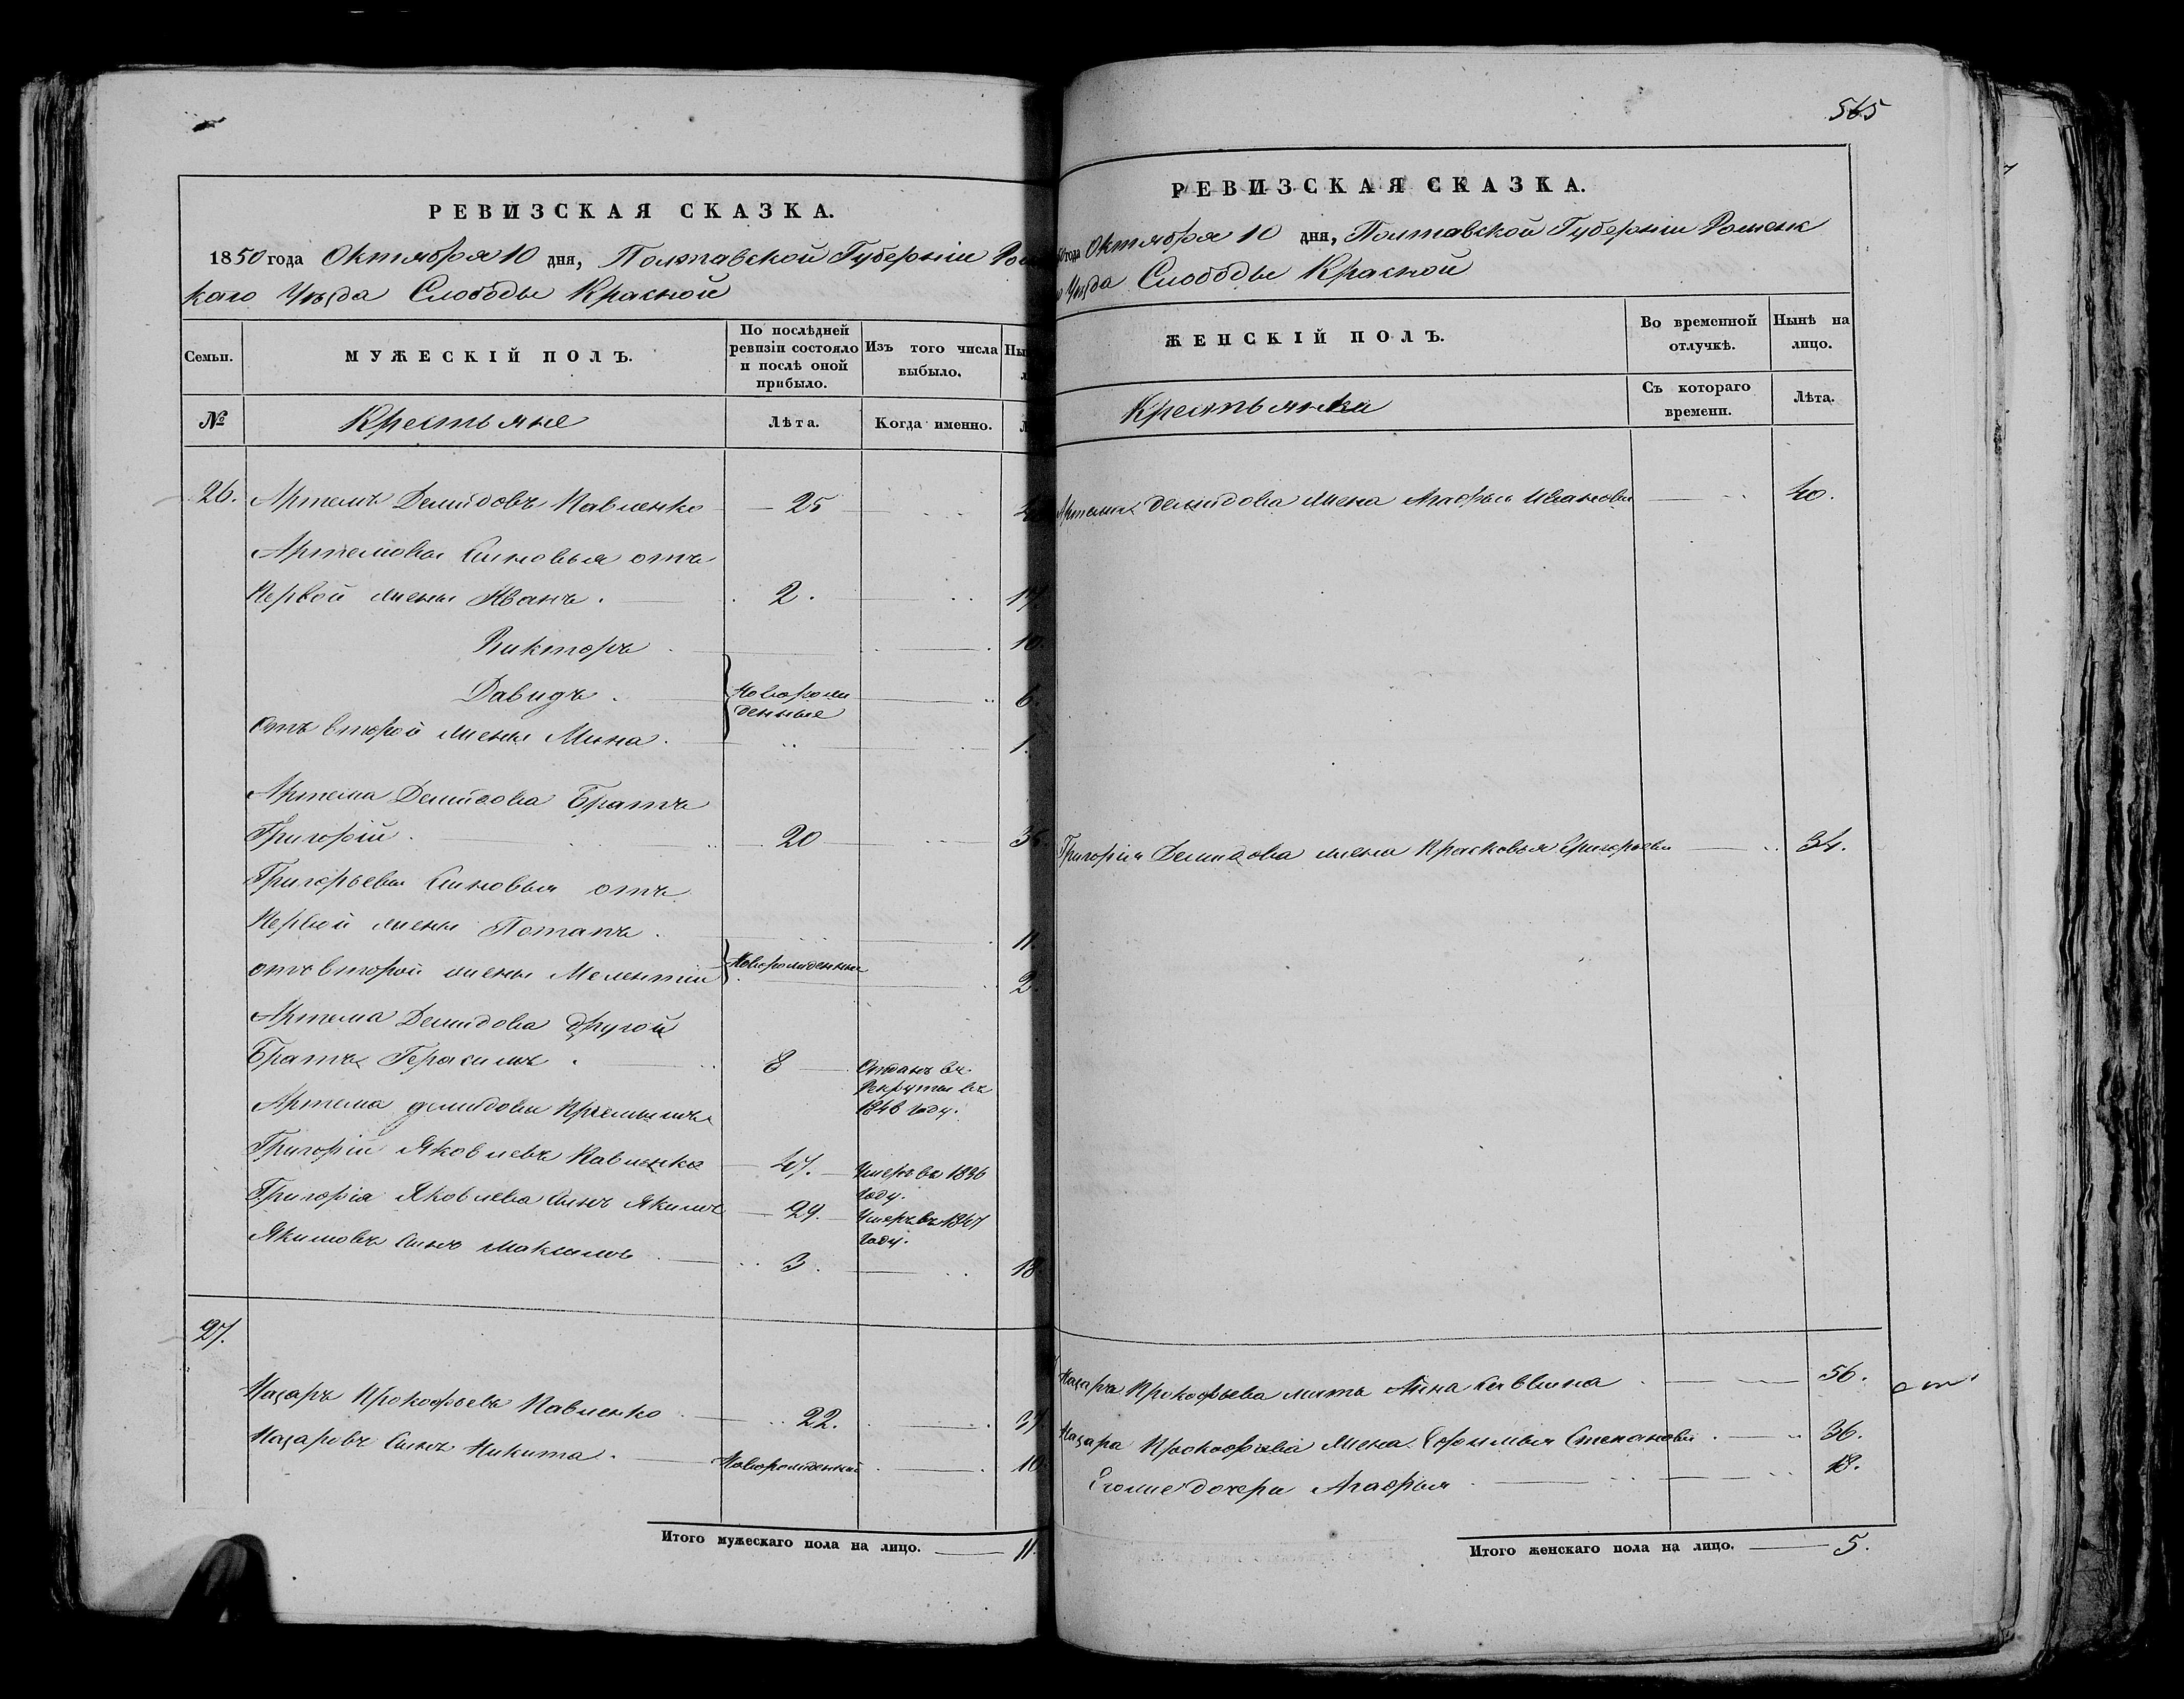 РЕВИЗСКАЯ СКАЗКА.
1850 года Октября 10 дня, Полтавской Губернiи
каго Уѣзда Слободы Красной
Семьи.
МУЖЕСКIЙ ПОЛЪ.
По послѣдней ревизiи состояло и послѣ оной прибыло.
Изъ того числа выбыло.
№
Крестьяне
Лѣта.
Когда именно.
26. Артемъ Демидовъ Павленко 25
Артемовы Сыновья отъ
Первой жены Иванъ. 2. 17.
Викторъ 10.
Давидъ. Новорожденные 6.
Отъ второй жены Мина. 1.
Артема Демидова Братъ
Григорiй. 20
Григорьевы Сыновья отъ
Первой жены Потапъ. 11.
отъ второй жены Мелентiй Новорожденные 2.
Артема Демидова другой
Братъ Герасимъ. 8 Отданъ въ Рекруты въ 1848 году.
Артема демидова Прiемышъ
Григорiй Яковлевъ Павленко 47. Умеръ въ 1836 году.
Григорiя Яковлева Сынъ Якимъ 29. Умеръ въ 1847 году.
Якимовъ Сынъ Максимъ 3. 18.
27.
Назаръ Прокофьевъ Павленко 22. 37.
Назаровъ Сынъ Никита. Новорожденный 10.
Итого мужескаго пола на лицо. 11.
565
РЕВИЗСКАЯ СКАЗКА.
года Октября 10 дня, Полтавской Губернiи Роменск
Уѣзда Слободы Красной
ЖЕНСКIЙ ПОЛЪ.
Во временной отлучкѣ.
Нынѣ на лицо.
Крестьянки
Съ котораго времени.
Лѣта.
Артема демидова жена Агафья Иванова 40.
Григорiя Демидова жена Прасковья Григорьева 34.
Назара Прокофьева мать Анна Саввина 56.
Назара Прокофьева Жена Ефимья Степанова. 36.
Его же дочери Агафья 18.
Итого женскаго пола на лицо. 5.